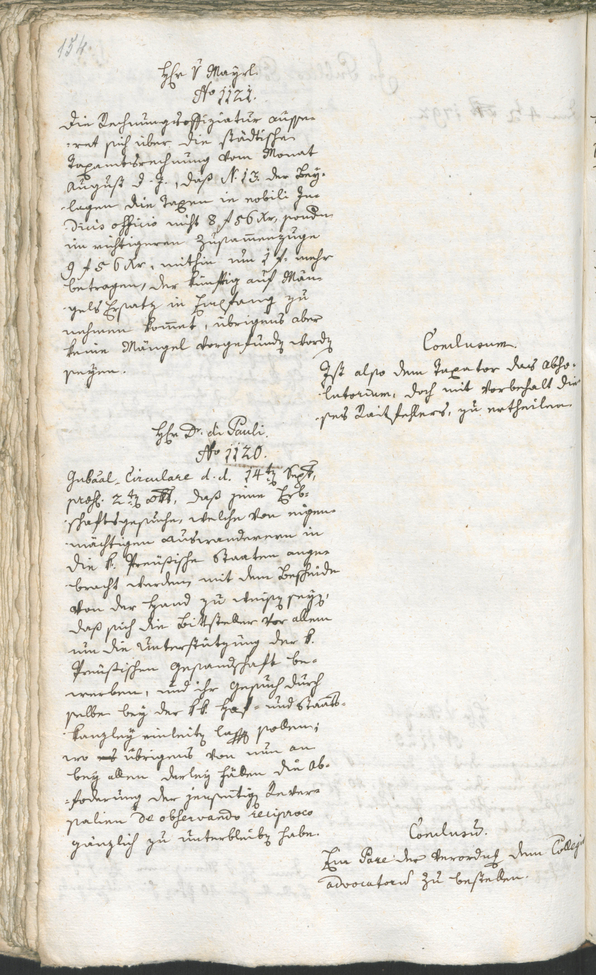 154.
Hhr v Mayrl.
No 1121.
Die Rechnungsoffiziatur äusse-
ret sich über die städtische
Taxamtsrechnung vom Monat
August d. J., daß N. 13 der Bey-
lagen die Taxen in nobili Ju-
dicis officio nicht 8 f 56 Xr, sonder
im richtigeren Zusammenzuge
9 f 56 Xr, mithin um 1 f. mehr
betragen, der künftig auf Män-
gels Ersatz in Empfang zu
nehmen kommt, übrigens aber
keine Mängel vorgefunden worden
seyen.
Conclusum.
Ist also dem Taxator das Abso-
lutorium, doch mit Vorbehalt die-
ses Raitfehlers, zu ertheilen.
Hhr Dr. di Pauli.
No 1120.
Gubäal-Circulare d. d. 14ten Sept,
præs. 2ten 8br, daß jene Erb-
schaftsgesuche, welche von eigen-
mächtigen Auswanderern in
die k. Preußische Staaten ange-
bracht werden, mit dem Bescheide
von der Hand zu weisen seyen,
daß sich die Bittsteller vor allem
um die Unterstützung der k.
Preußischen Gesandschaft be-
werben, und ihr Gesuch durch
selbe bey der kk. Hof- und Staats-
kanzley einleiten lassen sollen;
wo übrigens von nun an
bey allen derley Fällen die Ab-
foderung der jenseitigen Rever-
salien de observando reciproco
gänzlich zu unterbleiben habe.
Conclusum.
Ein Pare der Verordnung dem Collegio
advocatorum zu bestellen.